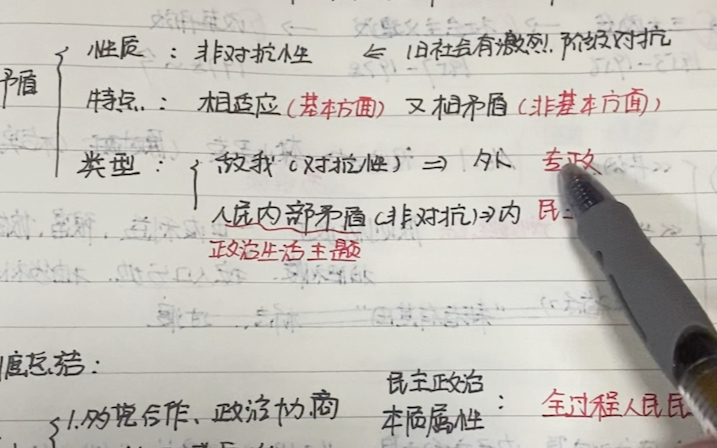 矛盾
性质：非对抗性 ⇐ 旧社会有激烈阶级对抗
特点：相适应（基本方面）又相矛盾（非基本方面）
类型：敌我（对抗性）⇒ 外 专政
人民内部矛盾（非对抗）⇒内 民
政治生活主题
度总结：
民主政治
本质属性：全过程人民民
1.多党合作、政治协商